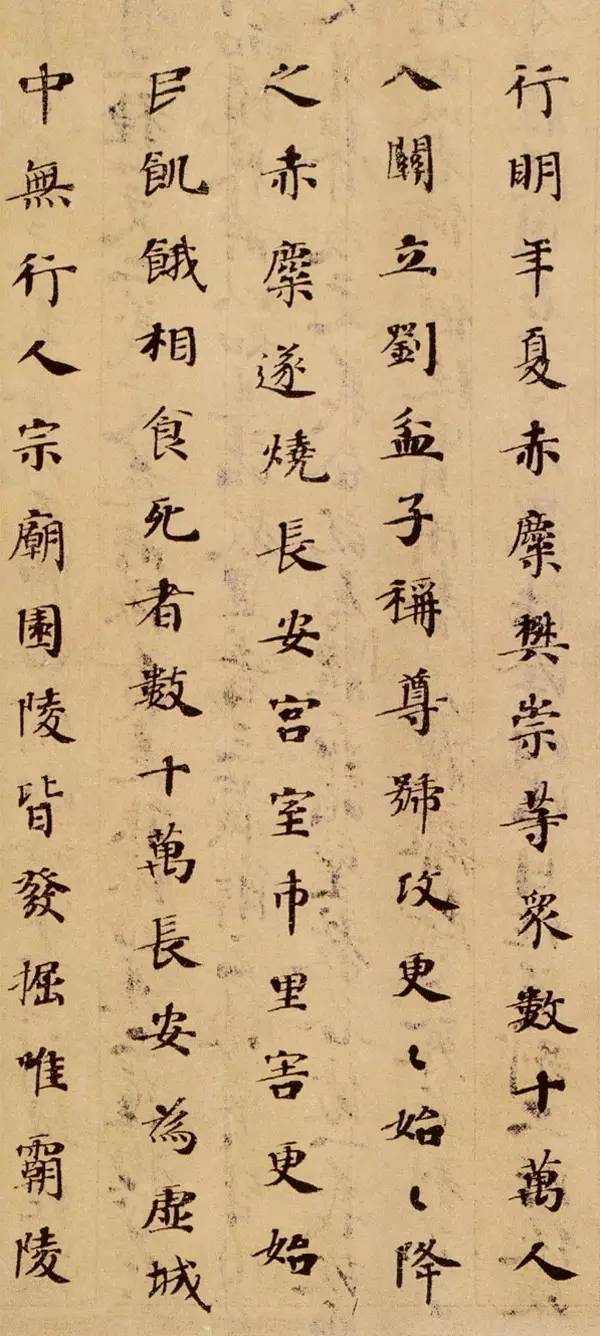 行明年夏赤麋樊崇等衆數十萬人
入關立劉盆子稱尊號攻更〻始〻降
之赤麋遂燒長安宮室市里害更始
民飢餓相食死者數十萬長安為虛城
中無行人宗廟園陵皆發掘唯霸陵